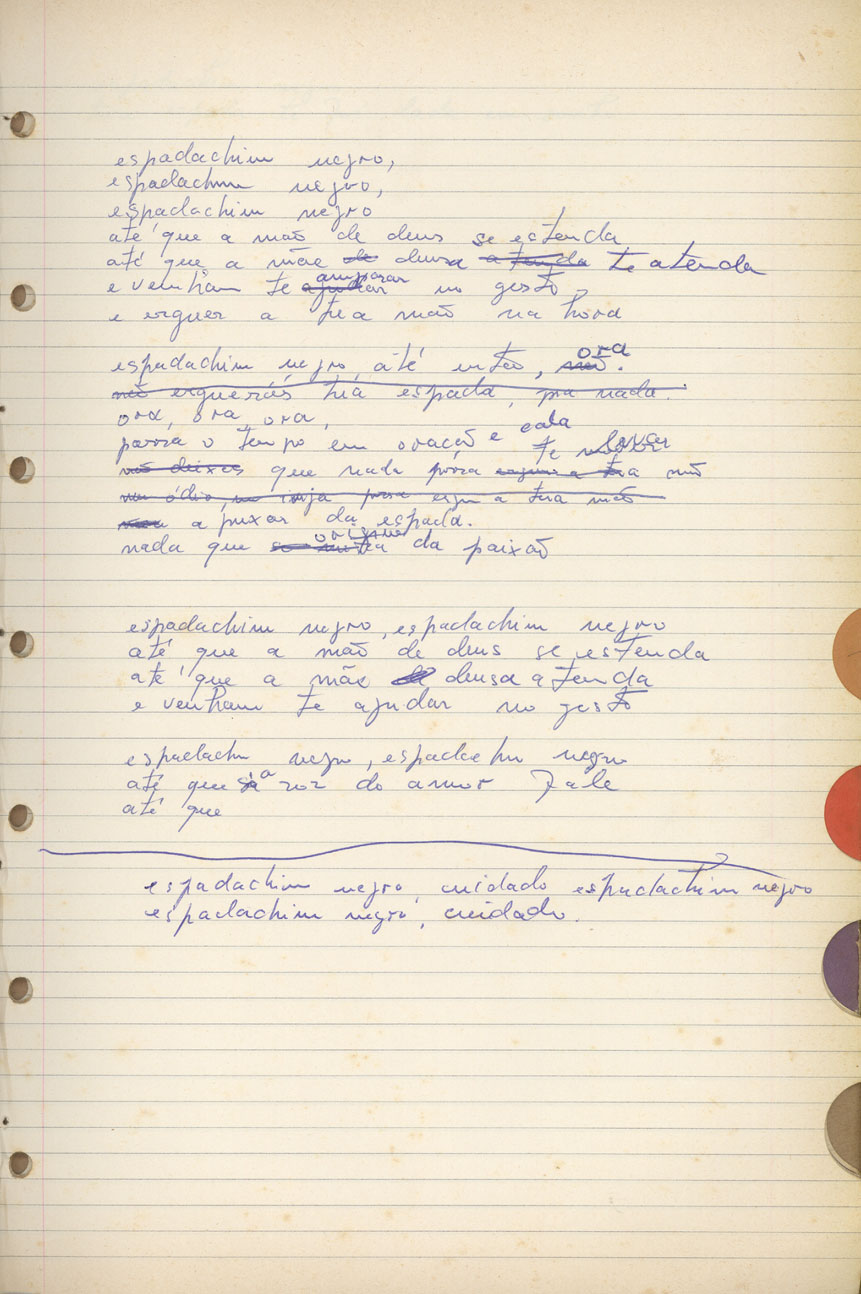 espadachim negro,
espadachim negro,
espadachim negro
até que a mão de deus se estenda
até que a mãe de deusa a tenda te atenda
amparar
e venham te ajudar no gesto
e erguer a tua mão na hora
ora
espadachim negro, até então, não.
não erguerás tua espada, pra nada.
ora, ora, ora,
passa o tempo em oração e cala
te
não deixes que nada possa erguer a tua mão
no ódio, no inveja possa erguer a tua mão
a puxar da espada.
origine
nada que da paixão
espadachim negro, espadachim negro
até que a mão de deus se estenda
até que a mãe de deusa atenda
e venham te ajudar no gesto
espadachi negro, espadachi negro
até que a voz do amor fale
até que
espadachim negro, cuidado espadachim negro
espadachim negro, cuidado.